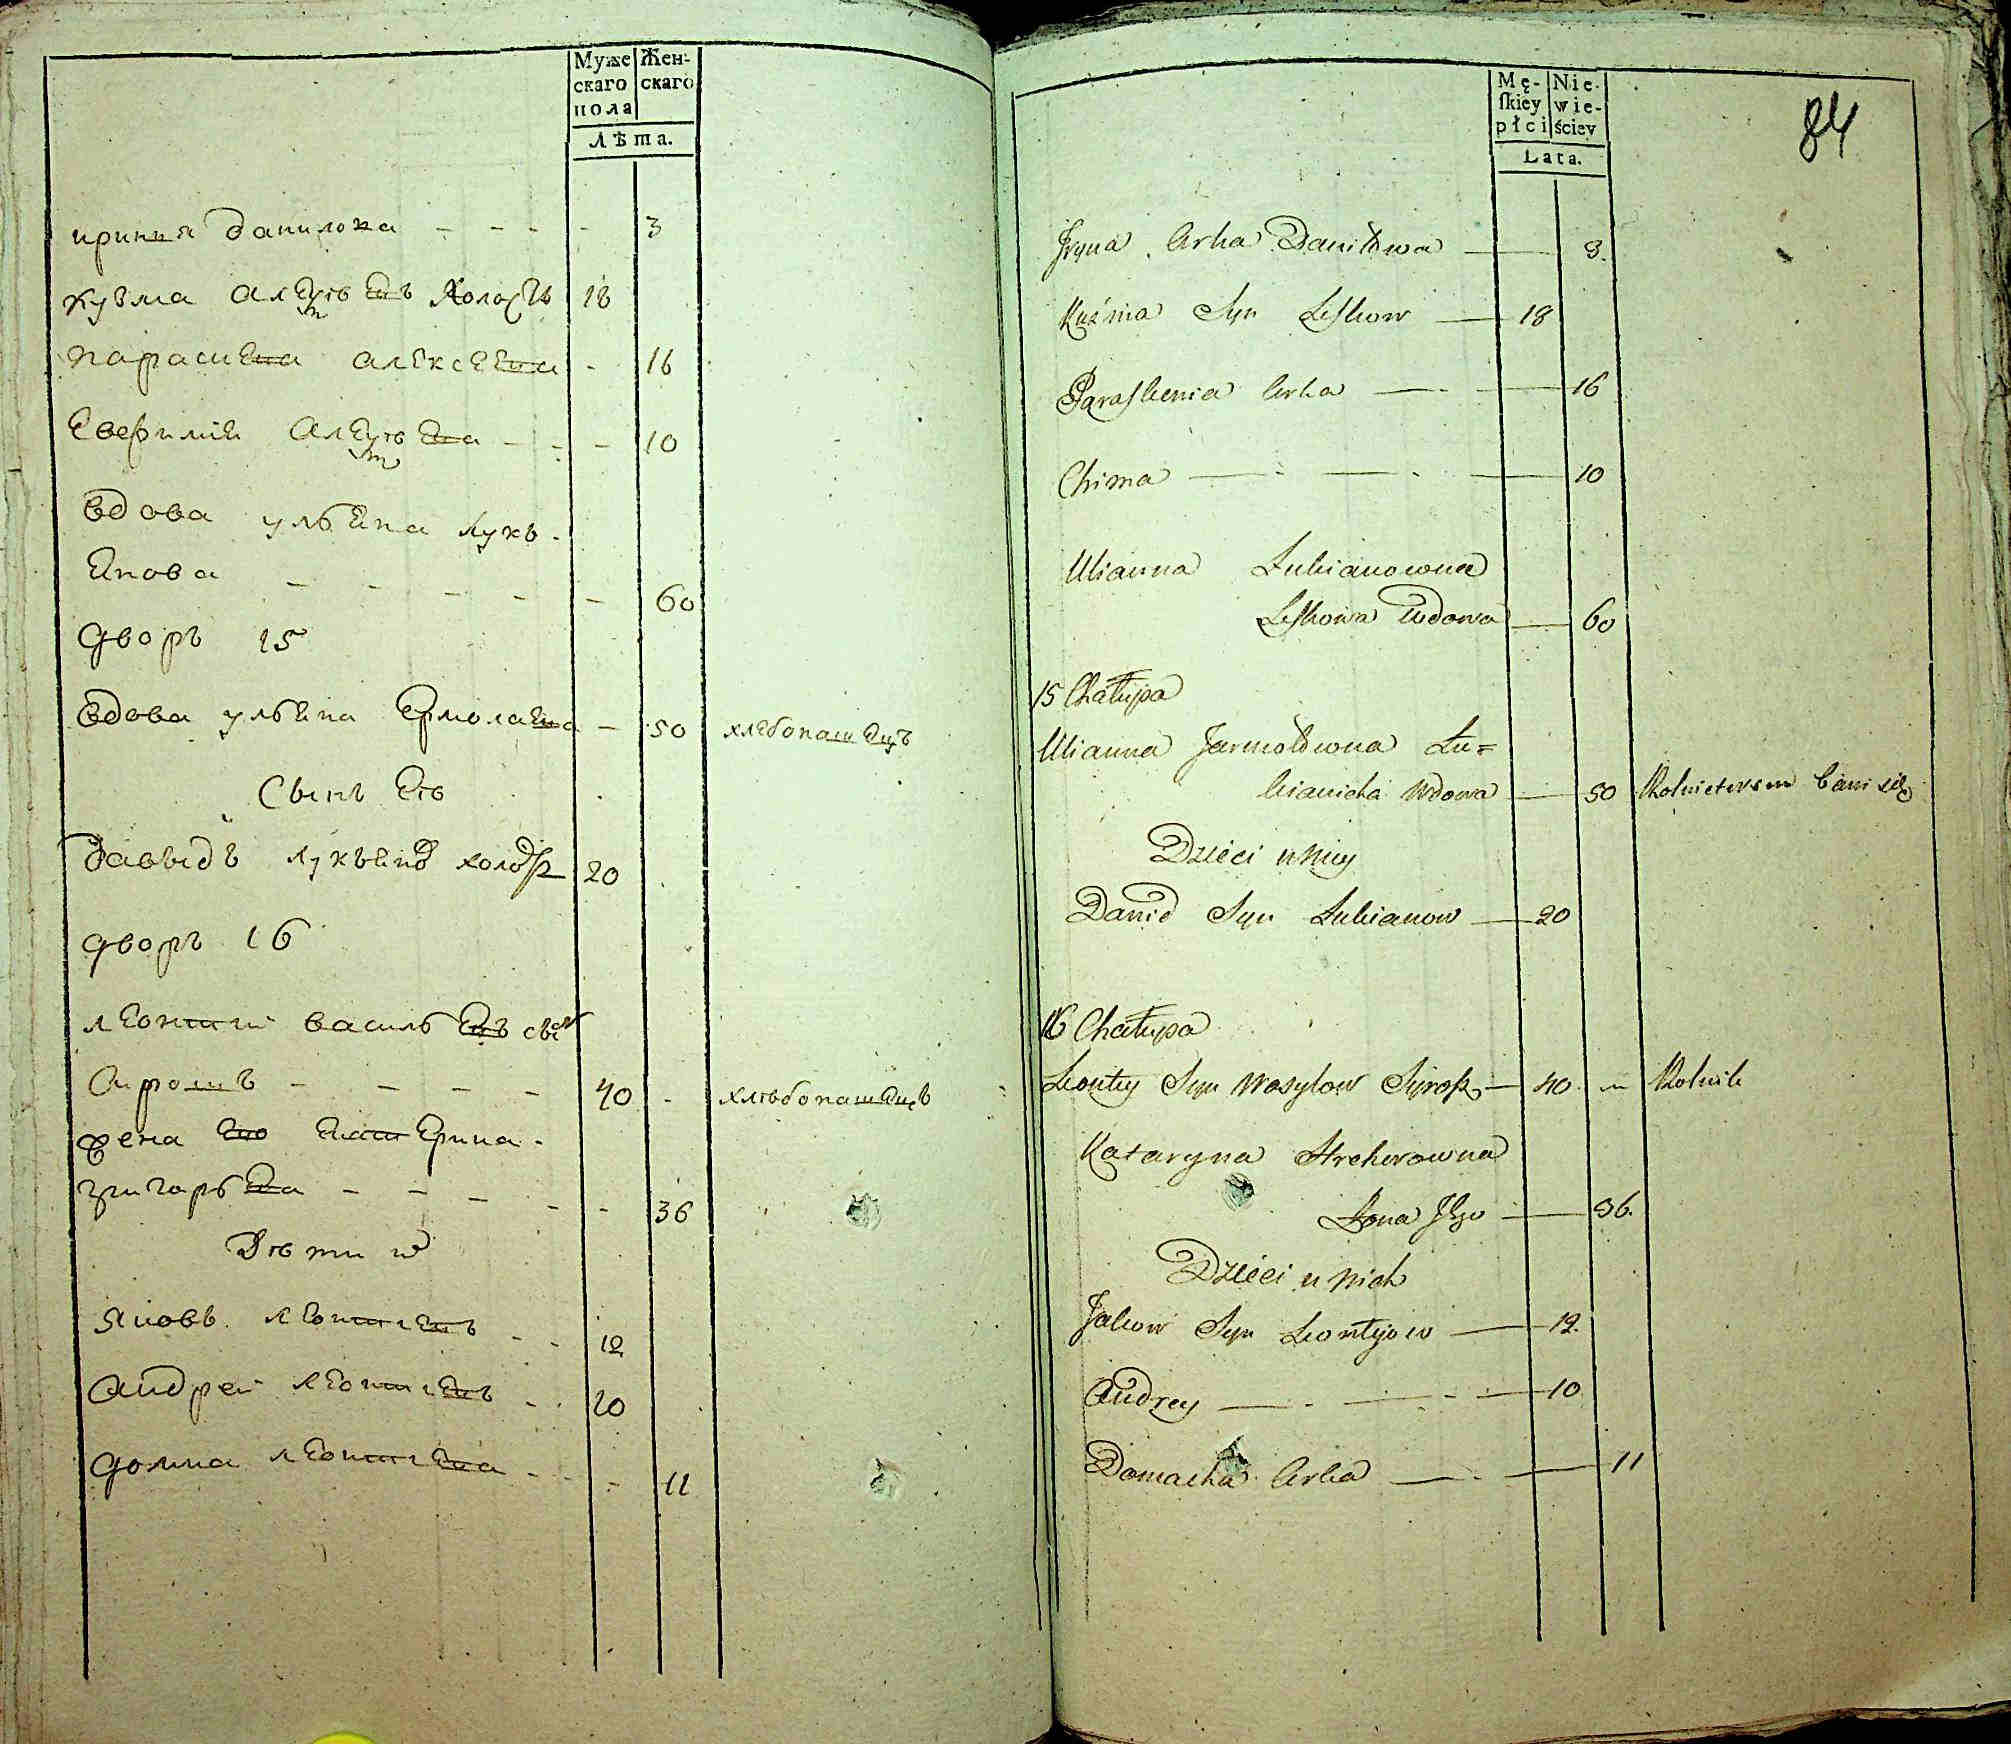 Муже Жен-
скаго скаго
пола
Лѣта.
ирина данилова - - - - 3
кузма алексѣевъ холостъ 18
парасковея алексеева - 16
Евфимия алексѣева - - - 10
вдова ульяна лукь-
янова - - - - - 60
дворъ 15
вдова ульяна Ермолаева - 50 хлебопашецъ
сынъ Ея
давыдъ лукьяновъ холостъ 20
дворъ 16
леонтий васильевъ сынъ
40 хлѣбопашецъ
жена Ево Екатерина
григорьева - - - - - 36
Дѣти их
яковъ леонтиевъ - - 12
андрей леонтиевъ - - 10
домна леонтиева - - - 11
84
Mę- Nie-
ſkiey wie-
płci ściey
Lata.
Iryna Crka Daniłowa 3.
Kuźma Syn Leſkow 18
Paraſkewia Crka 16
Chima 10
Ulianna Łukianowna
Leſkowa Wdowa 60
15 Chałupa
Ulianna Jarmołowna Łu=
kianicha Wdowa 50 Rolnictwem bawi się
Dzieci u Niey
Dawid Syn Łukianow 20
16 Chałupa
Leontey Syn Wasylow 40 Rolnik
Kataryna
Żona Jego 36.
Dzieci u Nich
Jakow Syn Leontyjow 12.
Andrzey 10
Domacha Crka 11